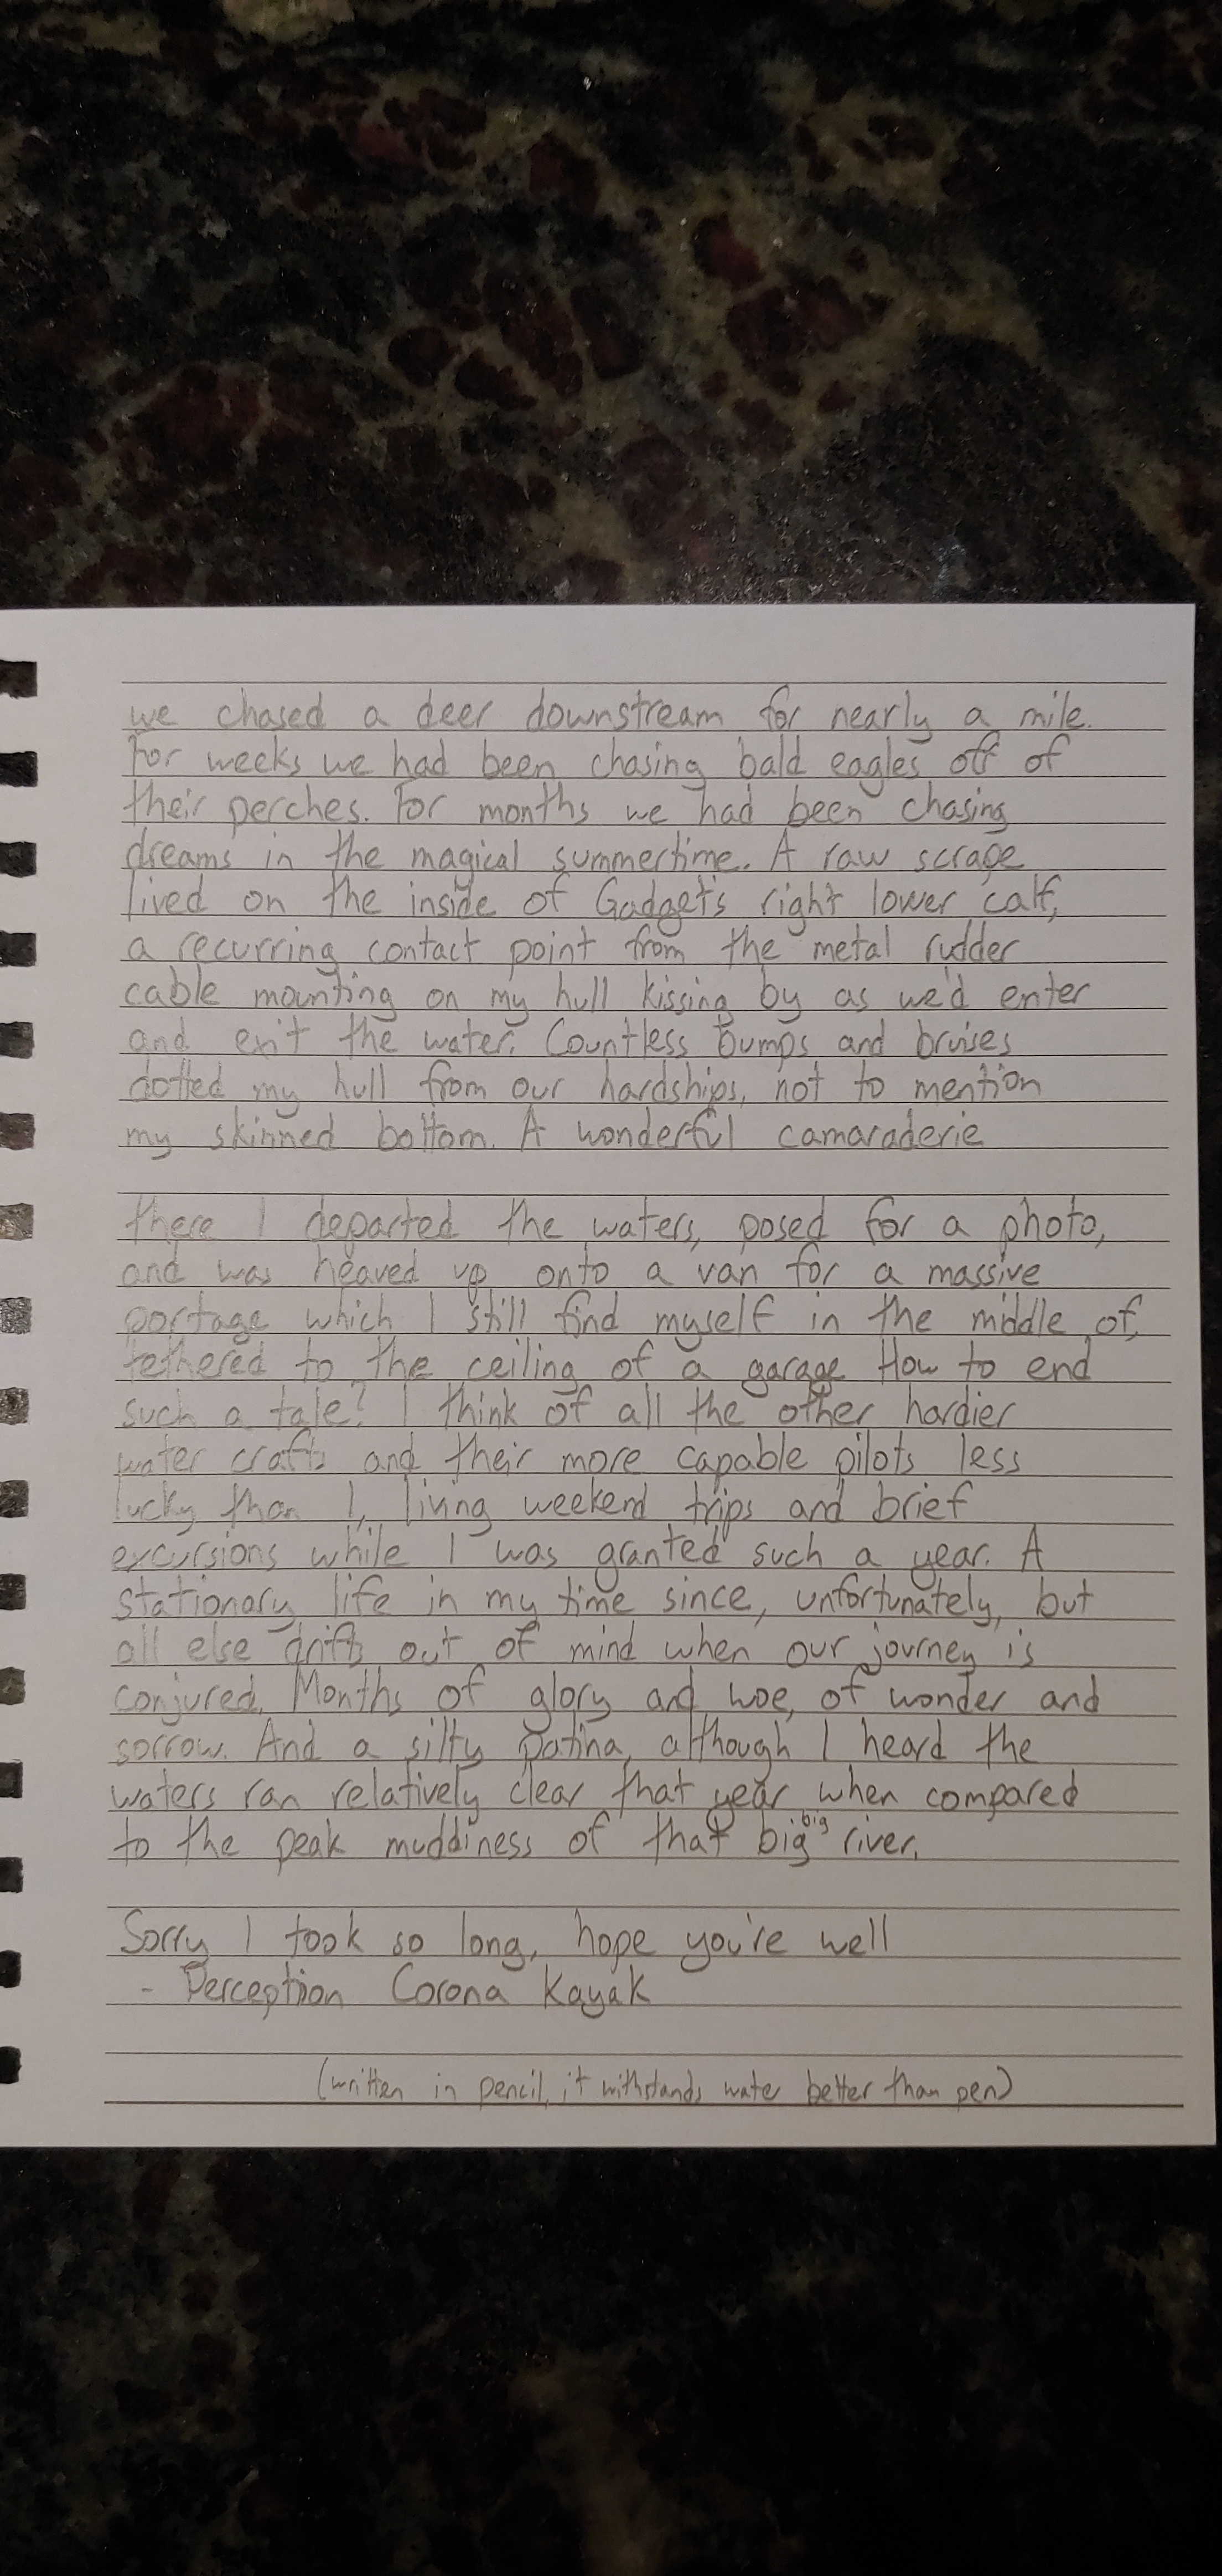 we chased a deer downstream for nearly a mile.
For weeks we had been chasing bald eagles off of
their perches. For months we had been chasing
dreams in the magical summertime. A raw scrape
lived on the inside of Gadget's right lower calf,
a recurring contact point from the metal rudder
cable mounting on my hull kissing by as we'd enter
and exit the water. Countless bumps and bruises
dotted my hull from our hardships, not to mention
my skinned bottom. A wonderful camaraderie
there I departed the waters, posed for a photo,
and was heaved up onto a van for a massive
portage which I still find myself in the middle of,
tethered to the ceiling of a garage. How to end
such a tale? I think of all the other hardier
water crafts and their more capable pilots less
lucky than I, living weekend trips and brief
excursions while I was granted such a year. A
stationary life in my time since, unfortunately, but
all else drifts out of mind when our journey is
conjured. Months of glory and woe, of wonder and
sorrow. And a silty patina, although I heard the
waters ran relatively clear that year when compared
to the peak muddiness of that big big river.
Sorry I took so long, hope you're well
- Perception Corona Kayak
(written in pencil, it withstands water better than pen)